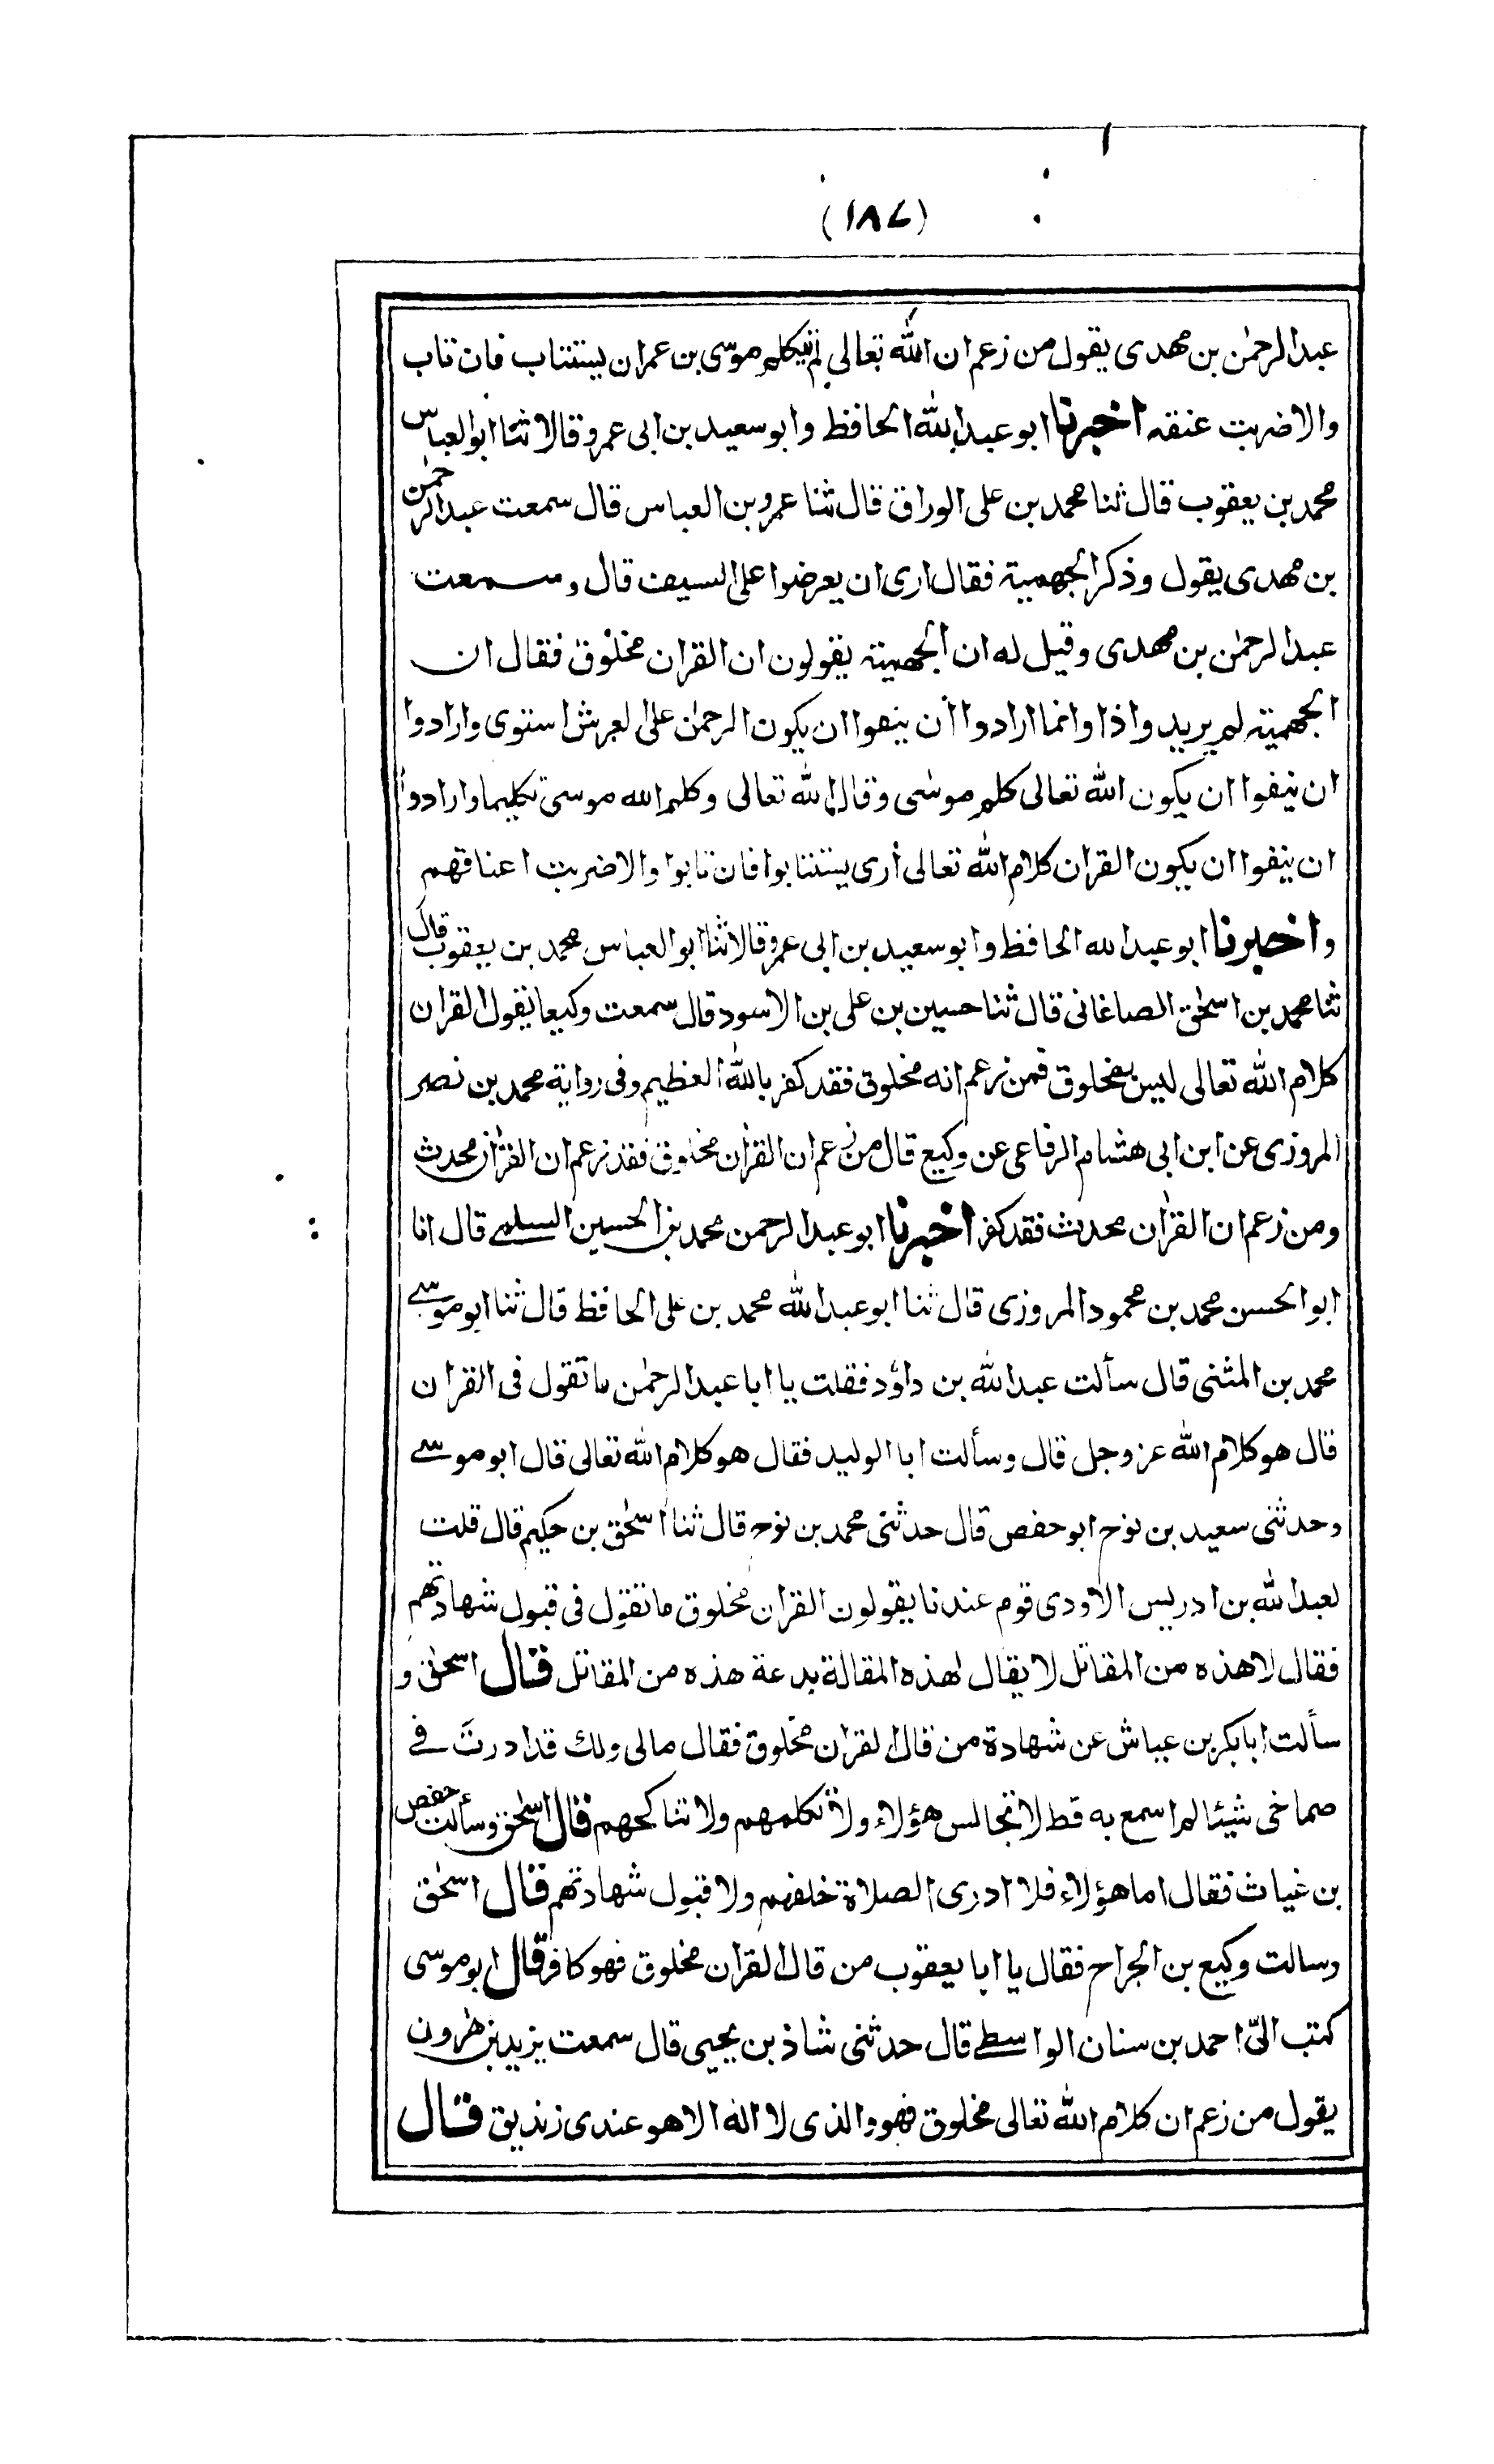 (١٨٧)
عبدالرحمٰن بن مهدى يقول من زعم ان الله تعالى لم يتكلم موسى بن عمران يستتاب فان تاب
والا ضربت عنقه اخبرنا ابو عبدالله الحافظ وابو سعيد بن ابى عمرو قالا ثنا ابوالعباس
محمد بن يعقوب قال ثنا محمد بن على الوراق قال ثنا عمرو بن العباس قال سمعت عبدالرحمٰن
بن مهدى يقول وذكر الجهمية فقال ارى ان يعرضوا على السيف قال وسمعت
عبدالرحمٰن بن مهدى وقيل له ان الجهمية يقولون ان القران مخلوق فقال ان
الجهمية لم يريدوا ذا وانما ارادوا أن ينفوا ان يكون الرحمٰن على العرش استوى وارادوا
ان ينفوا ان يكون الله تعالى كلم موسٰى وقال الله تعالى وكلم الله موسى تكليما وارادوا
ان ينفوا ان يكون القران كلام الله تعالى أرى يستتابوا فان تابوا والا ضربت اعناقهم
واخبرنا ابو عبدالله الحافظ وابو سعيد بن ابى عمرو قالا ثنا ابو العباس محمد بن يعقوب قال
ثنا محمد بن اسحٰق الصاغانى قال ثنا حسين بن على بن الاسود قال سمعت وكيعا يقول القران
كلام الله تعالى ليس بمخلوق فمن زعم انه مخلوق فقد كفر بالله العظيم وفى رواية محمد بن نصر
المروزى عن ابن ابى هشام الرفاعى عن وكيع قال من زعم ان القرٰان مخلوق فقد زعم ان القرٰان محدث
ومن زعم ان القرٰان محدث فقد كفر اخبرنا ابو عبدالرحمن محمد بن الحسين السلمے قال انا
ابو الحسن محمد بن محمود المروزى قال ثنا ابو عبدالله محمد بن على الحافظ قال ثنا ابو موسے
محمد بن المثنى قال سألت عبدالله بن داؤد فقلت يا ابا عبدالرحمٰن ما تقول فى القران
قال هو كلام الله عز وجل قال وسألت ابا الوليد فقال هو كلام الله تعالى قال ابو موسے
وحدثنى سعيد بن نوح ابو حفص قال حدثنى محمد بن نوح قال ثنا اسحٰق بن حكيم قال قلت
لعبدالله بن ادريس الاودى قوم عندنا يقولون القران مخلوق ما تقول فى قبول شهادتهم
فقال لا هذه من المقاتل لا يقال لهذه المقالة بدعة هذه من المقاتل قال اسحٰق و
سألت ابا بكر بن عياش عن شهادة من قال القران مخلوق فقال مالى ولك قد ادرت فے
صماخى شيئا لم اسمع به قط لا تجالس هؤلاء ولا تكلمهم ولا تناكحهم قال اسحٰق وسألت حفص
بن غياث فقال اما هؤلاء فلا ادرى الصلاة خلفهم ولا قبول شهادتهم قال اسحٰق
وسالت وكيع بن الجراح فقال يا ابا يعقوب من قال القران مخلوق فهو كافر قال ابو موسى
كتب الىّ احمد بن سنان الواسطے قال حدثنى شاذ بن يحيى قال سمعت يزيد بن هٰرون
يقول من زعم ان كلام الله تعالى مخلوق فهو والذى لا اله الا هو عندى زنديق قال